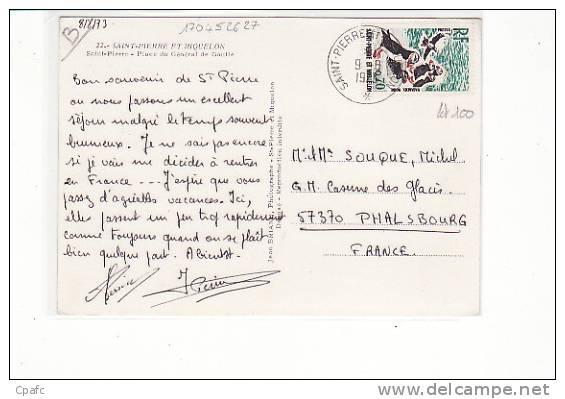 B
8/8/73
170452627
22.- SAINT-PIERRE ET MIQUELON
Saint-Pierre - Place du Général de Gaulle
Bon souvenir de St Pierre
ou nous passons un excellent
séjour malgré le temps souvent
brumeux. Je ne sais pas encore
si je vais me décider à rentrer
en France --- J'espère que vous
passez d'agréables vacances. Ici,
elles passent un peu trop rapidement
comme toujours quand on se plait
bien quelque part. A bientôt.
Jean BRIAND, Photographe - St-Pierre et Miquelon
Reproduction interdite
SAINT-PIERRE
RF
SAINT-PIERRE ET MIQUELON
0,70
100
Mr & Mme SOUQUE, Michel
G.M. Caserne des Glacis
57370 PHALSBOURG
FRANCE
Cpafc
delcampe.net